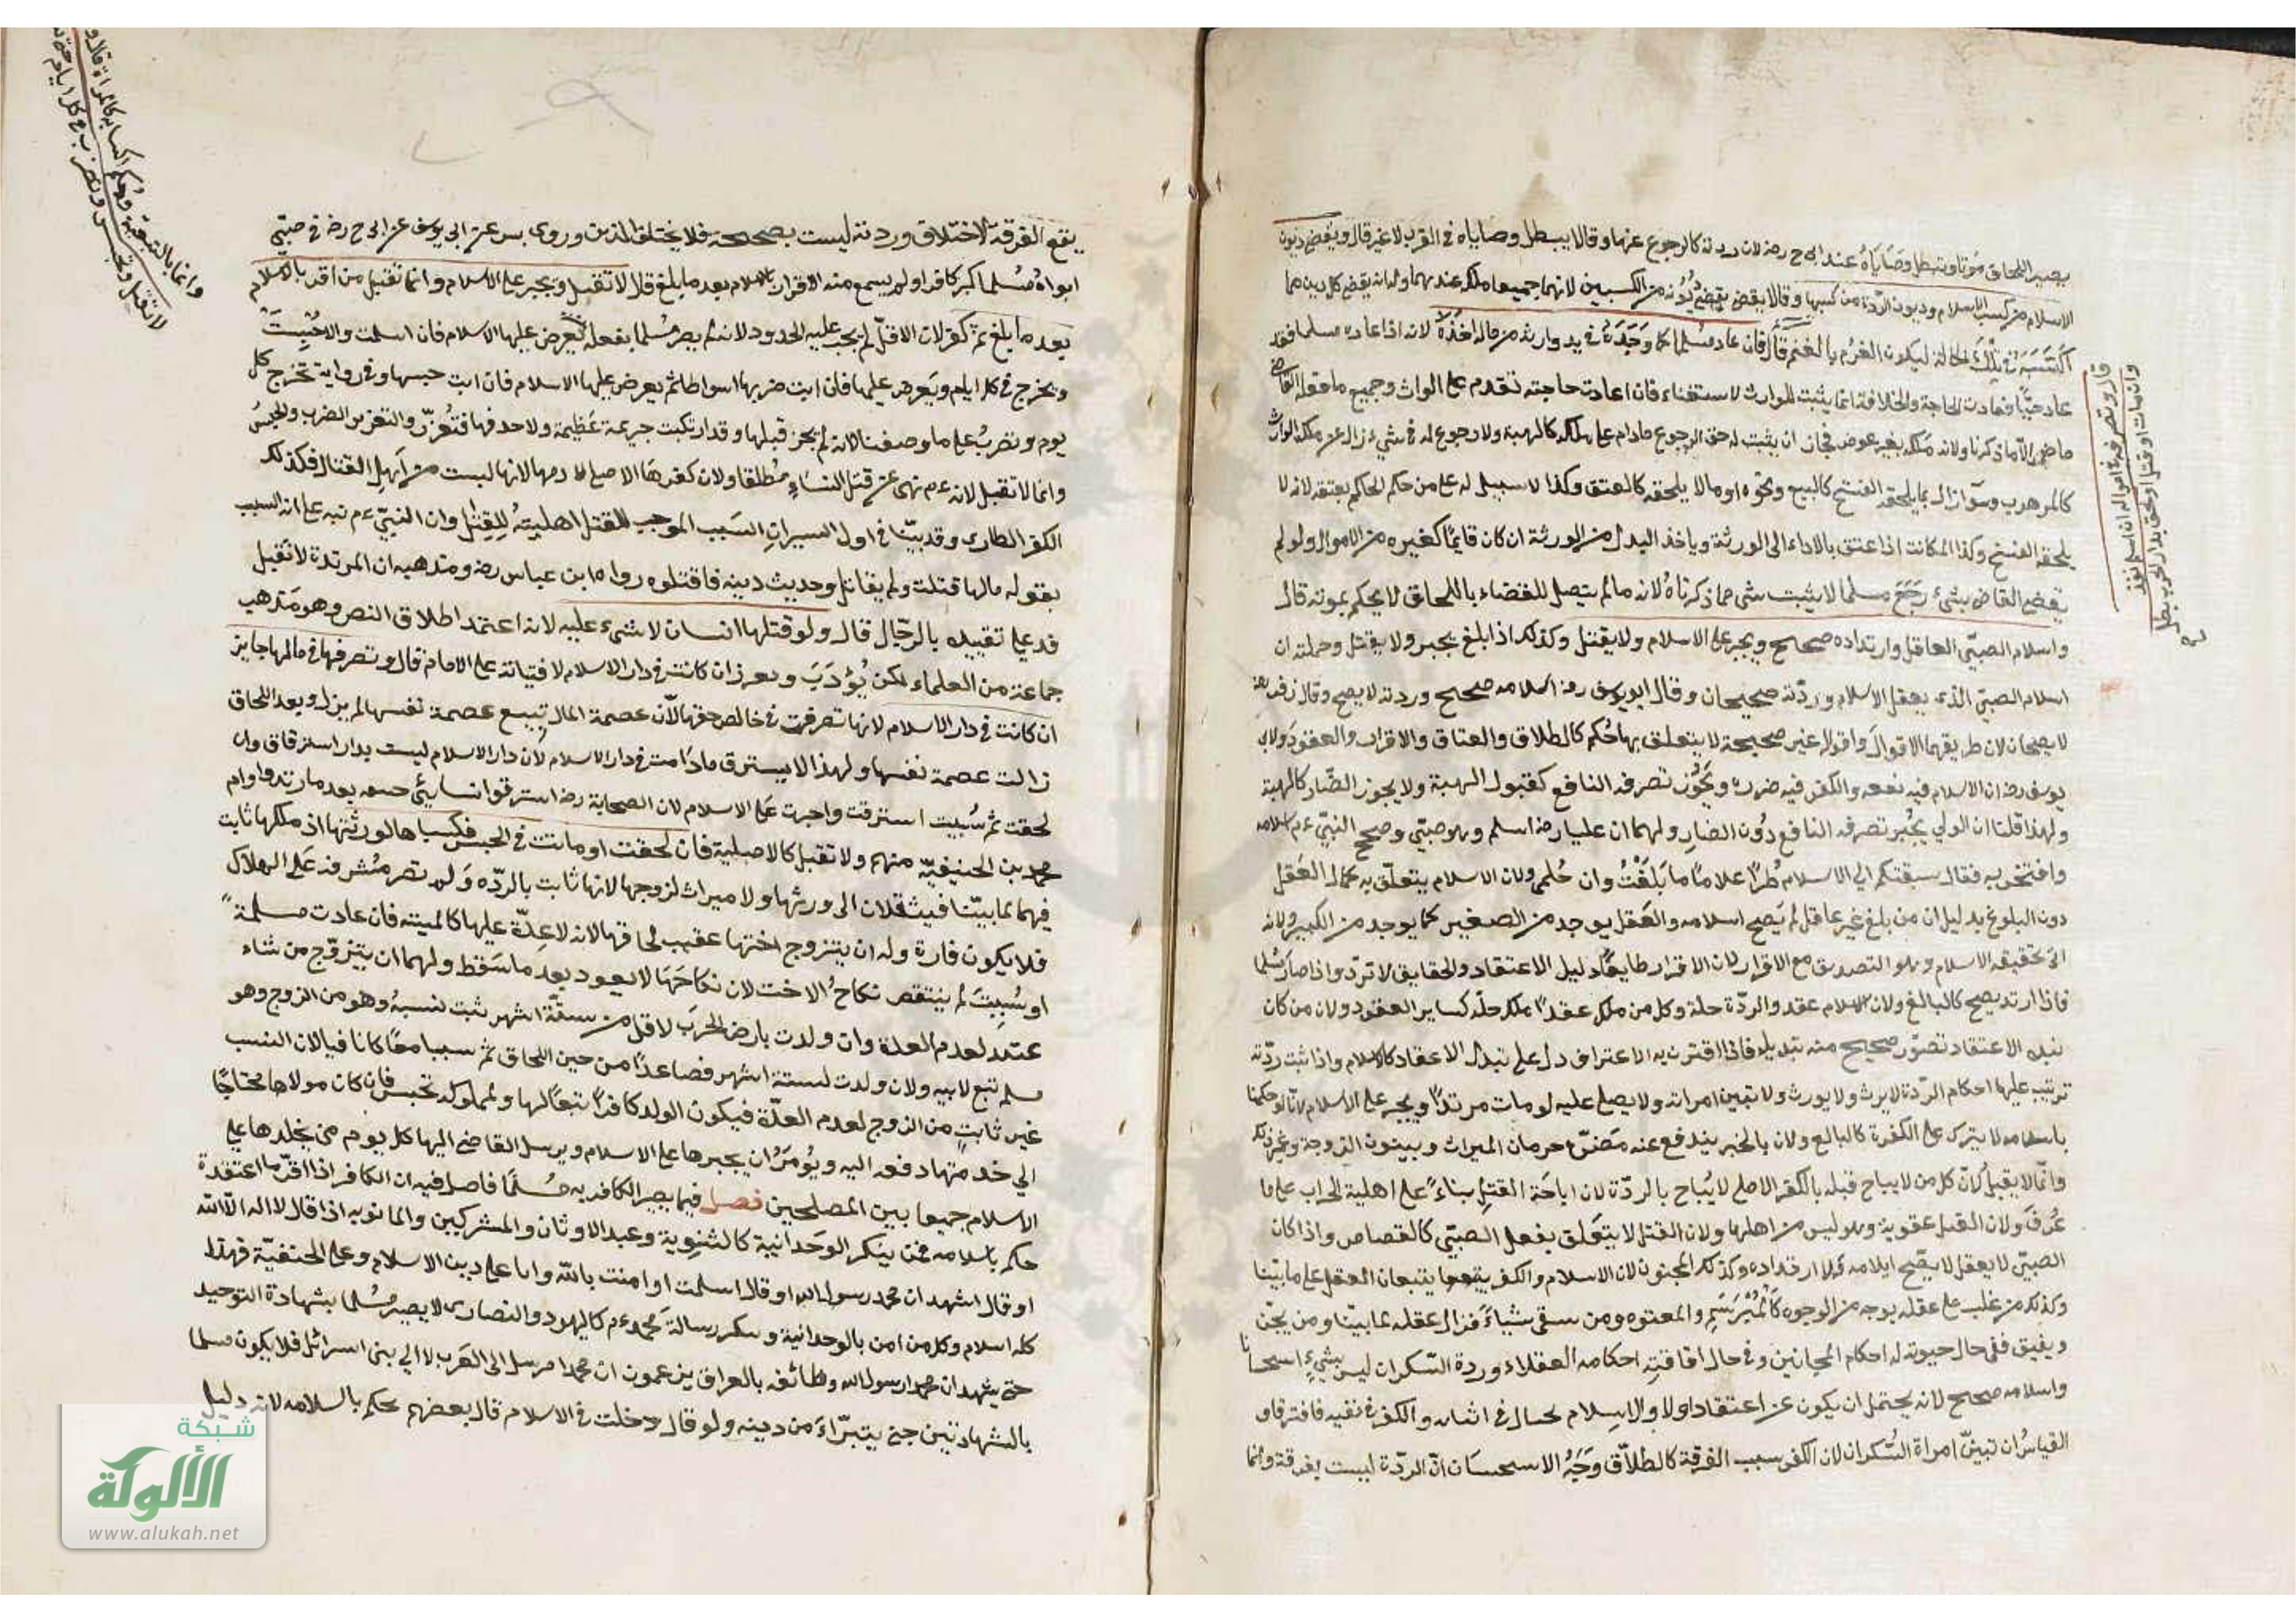 يصير اللحاق موتا ويبطل وصاياه عند ابى ح رضه لان ردته كالرجوع عنها وقالا يبطل وصاياه فى القرب لا غير قال ويقضى ديون
الاسلام من كسب الاسلام وديون الردة من كسبها وقالا يقضى ديونه من الكسبين لانهما جميعا ملكه عندهما وله انه يقضى كل دين مما
اكتسبه فى تلك الحالة ليكون الغرم بالغنم قال فان عاد مسلما فما وجده فى يد وارثه من ماله اخذه لانه اذا عاد مسلما فقد
عاد حيا فعادت الحاجة والخلافة انما يثبت للوارث لاستغنائه فان اعادت حاجته تقدم على الوارث وجميع ما فعله القاضى
ماض الا ما ذكرنا ولانه ملكه بغير عوض فجاز ان يثبت له حق الرجوع مادام على ملكه كالهبة ولا رجوع له فى شىء زال عن ملك الوارث
كالموهوب وسوآ زال بما يلحقه الفسخ كالبيع ونحوه او ما لا يلحقه كالعتق وكذا لا سبيل له على من حكم الحاكم بعتقه لانه لا
يلحقه الفسخ وكذا المكاتب اذا عتق بالاداء الى الورثة وياخذ البدل من الورثة ان كان قايما كغيره من الاموال ولو لم
يقض القاضى بشىء رجع مسلما لا يثبت شى مما ذكرناه لانه مالم يتصل القضاء باللحاق لا يحكم بموته قال
واسلام الصبى العاقل وارتداده صحيح ويجبر على الاسلام ولا يقتل وكذلك اذا بلغ يجبر ولا يقتل وجملته ان
اسلام الصبى الذى يعقل الاسلام وردته صحيحان وقال ابو يوسف رضه اسلامه صحيح وردته لا يصح وقال زفر رضه
لا يصحان لان طريقهما الاقوال واقواله غير صحيحة لا يتعلق بها حكم كالطلاق والعتاق والاقرار والعقود ولابى
يوسف رضه ان الاسلام فيه نفعه والكفر فيه ضرره ويجوز تصرفه النافع كقبول الهبة ولا يجوز الضار كالهبة
ولهذا قلنا ان الولى يجبر تصرفه النافع دون الضار ولهما ان عليا رضه اسلم وهو صبى وصحح النبى ءم اسلامه
وافتخر به فقال سبقتكم الى الاسلام طرا غلاما ما بلغت اوان حلمى ولان الاسلام يتعلق به كمال العقل
دون البلوغ بدليل ان من بلغ غير عاقل لم يصح اسلامه والعقل يوجد من الصغير كما يوجد من الكبير ولانه
اتى بحقيقة الاسلام وهو التصديق مع الاقرار لان الاقرار طايعا دليل الاعتقاد والحقايق لا ترد واذا صار مسلما
فاذا ارتد يصح كالبالغ ولان الاسلام عقد والردة حلة وكل من ملك عقدا ملك حله كساير العقود ولان من كان
منه الاعتقاد تصور صحيح منه تبديله فاذا اقترن به الاعتراف دل على تبدل الاعتقاد كالاسلام واذا ثبت ردته
ترتب عليها احكام الردة لا يرث ولا يورث ولا تبين امراته ولا يصلى عليه لو مات مرتدا ويجبر على الاسلام لانا لو حكمنا
باسلامه لا يترك على الكفرة كالبالغ ولان بالجبر يندفع عنه مضرة حرمان الميراث وبينون الزوجة وغير ذلك
وانما لا يقبل لان كل من لا يباح قبله بالكفر الاصلى لا يباح بالردة لان اباحة القتل بناء على اهلية الحراب على ما
عرف ولان القتل عقوبة وهو ليس من اهلها ولان القتل لا يتعلق بفعل الصبى كالقصاص واذا كان
الصبى لا يعقل لا يصح اسلامه ولا ارتداده وكذلك المجنون لان الاسلام والكفر يتبعان العقل على ما بينا
وكذلك من غلب على عقله بوجه من الوجوه كالمبرسم والمعتوه ومن سقى شياء فزال عقله لما بينا ومن يجن
ويفيق ففى حال جنونه له احكام المجانين وفى حال افاقته احكامه العقلاء وردة السكران ليس بشىء استحسانا
واسلامه صحيح لانه يحتمل ان يكون عن اعتقاد اولا والاسلام يحتال فى اثباته والكفر فى نفيه فافترقا و
القياس ان تبين امراة السكران لان الكفر سبب الفرقة كالطلاق وجه الاستحسان ان الردة ليست بفرقة وانما
قال وتصرفه فى امواله ان اسلم نفذ
وان مات او قتل او لحق بدار الحرب بطل
يقع الفرقة لاختلاف وردته ليست بصحيحة فلا يختلف الدين وروى بسر عن ابى يوسف عن ابى ح رضه فى صبى
ابواه مسلما كبر كافرا ولم يسمع منه الاقرار بالاسلام بعد ما بلغ قال لا تقبل ويجبر على الاسلام وانما تقبل من اقر بالاسلام
بعد ما بلغ ثم كفر لان الاول لم يجب عليه الحدود لانه لم يصر مسلما بفعله يعرض عليها الاسلام فان اسلمت والا حبست
ويخرج فى كل ايام ويعرض عليها فان ابت ضربها اسواطا ثم يعرض عليها الاسلام فان ابت حبسها وفى رواية تخرج كل
يوم وتضرب على ما وصفنا لانه لم يجز قبلها وقد ارتكبت جريمة عظيمة ولا حد فيها فتعزر والتعزير الضرب والحبس
وانما لا تقبل لانه ءم نهى عن قتل النساء مطلقا ولان كفرها الاصلى لا دمها لانها ليست من اهل القتال فكذلك
الكفر الطارى وقد بينا فى اول السير ان السبب الموجب للقتل اهليته للقتل وان النبى ءم نبه على انه السبب
بقوله مالها قتلت ولم يقاتل وحديث دينه فاقتلوه رواه ابن عباس رضه ومذهبه ان المرتدة لا تقبل
فدعى تقييده بالرجال قال ولو قتلها انسان لا شىء عليه لانه اعتمد اطلاق النص وهو مذهب
جماعة من العلماء لكن يؤدب ويعزر ان كانت فى دار الاسلام لافتياته على الامام قال وتصرفها فى مالها جايز
ان كانت فى دار الاسلام لانها تصرفت فى خالص حقها لان عصمة المال تبع عصمة نفسها لم يزل وبعد اللحاق
زالت عصمة نفسها ولهذا لا يسترق مادامت فى دار الاسلام لان دار الاسلام ليست بدار استرقاق وان
لحقت ثم سبيت استرقت واجبرت على الاسلام لان الصحابة رضه استرقوا نساء بنى حنيفه بعد ما ارتدوا وام
محمد بن الحنيفية منهم ولا تقبل كالاصلية فان لحقت او ماتت فى الحبس فكسباها لورثتها اذ ملكها ثابت
فيهما لما بينا فيثقلان الى ورثتها ولا ميراث لزوجها لانها ثابت بالرده ولم تصر مشرفة على الهلاك
فلا يكون فارة وله ان يتزوج اختها عقيب لحاقها لانه لا عدة عليها كالميته فان عادت مسلمة
او سبيت لم ينتقض نكاح الاخت لان نكاحها لا يعود بعد ما سقط ولهما ان يتزوج من شاء
عتد لعدم العدة وان ولدت بارض الحرب لاقل من ستة اشهر ثبت نسبه وهو من الزوج وهو
مسلم تبع لابيه ولان ولدت لستة اشهر فصاعدا من حين اللحاق ثم سبيا معا كانا فيا لان النسب
غير ثابت من الزوج لعدم العدة فيكون الولد كافرا تبعا لها ولمملوكه تحبس فان كان مولاها محتاجا
الى خدمتها دفعه اليه ويؤمر ان يجبرها على الاسلام ويرسل القاضى اليها كل يوم من يجلدها على
الاسلام جمعا بين المصلحين فصل فيما يصير الكافر به مسلما فاصل فيه ان الكافر اذا اقر ما اعتقده
حكم باسلامه فمن ينكر الوحدانية كالثنوية وعبد الاوثان والمشركين والمانويه اذا قال لا اله الا الله
او قال اشهد ان محمد رسول الله او قال اسلمت او امنت بالله وانا على دين الاسلام وعلى الحنفية فهذا
كله اسلام وكل من امن بالوحدانية وينكر رسالة محمد ءم كاليهود والنصارى لا يصير مسلما بشهادة التوحيد
حتى يشهد ان محمد ارسول الله وطائفه بالعراق يزعمون ان محمدا مرسل الى العرب لا الى بنى اسرائل فلا يكون مسلما
بالشهادتين حتى يتبراء من دينه ولو قال دخلت فى الاسلام قال بعضهم يحكم باسلامه لانه دليل
شبكة
الألوكة
www.alukah.net